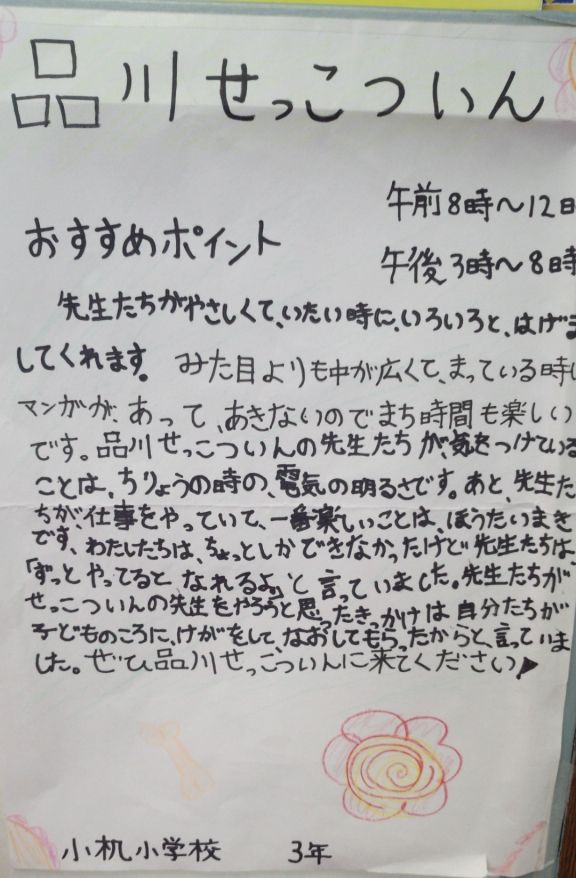 品川せっこついん
午前8時〜12時
おすすめポイント
午後3時〜8時
先生たちがやさしくて、いたい時に、いろいろと、はげま
してくれます。みた目よりも中が広くて、まっている時に
マンガが、あって、あきないのでまち時間も楽しい
です。品川せっこついんの先生たちが、気をつけている
ことは、ちりょうの時の、電気の明るさです。あと、先生た
ちが、仕事をやっていて、一番楽しいことは、ほうたいまき
です、わたしたちは、ちょっとしかできなかったけど先生たちは、
「ずっとやってるとなれるよ。」と言っていました。先生たちが
せっこついんの先生をやろうと思ったきっかけは自分たちが
子どものころに、けがをして、なおしてもらったからと、言っていま
した。ぜひ品川せっこついんに来てください!
小机小学校 3年